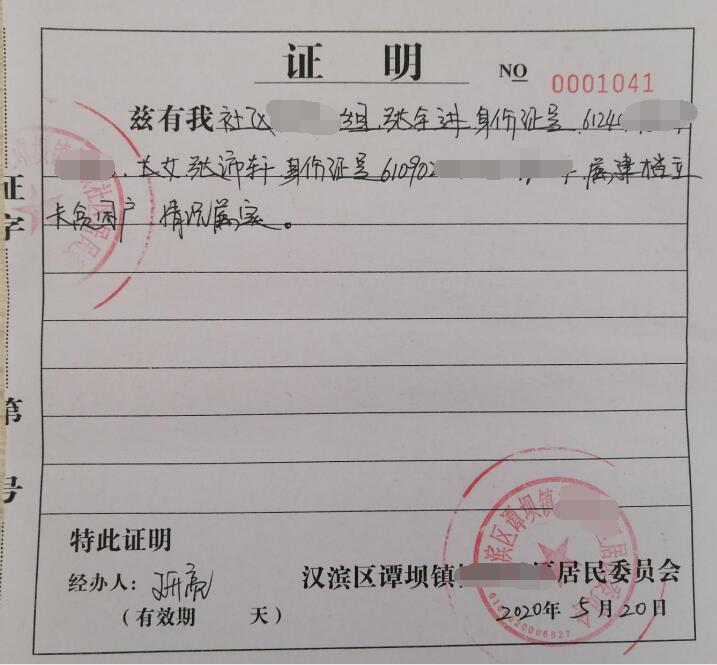 证 明
NO 0001041
兹有我社区 组 张余进 身份证号 6124
长女张沛轩 身份证号 610902 属建档立
卡贫困户 情况属实。
证
字
第
号
特此证明
经办人：
（有效期 天）
汉滨区谭坝镇 区居民委员会
2020年5月20日
滨区谭坝镇 居民委员会
6109020006827